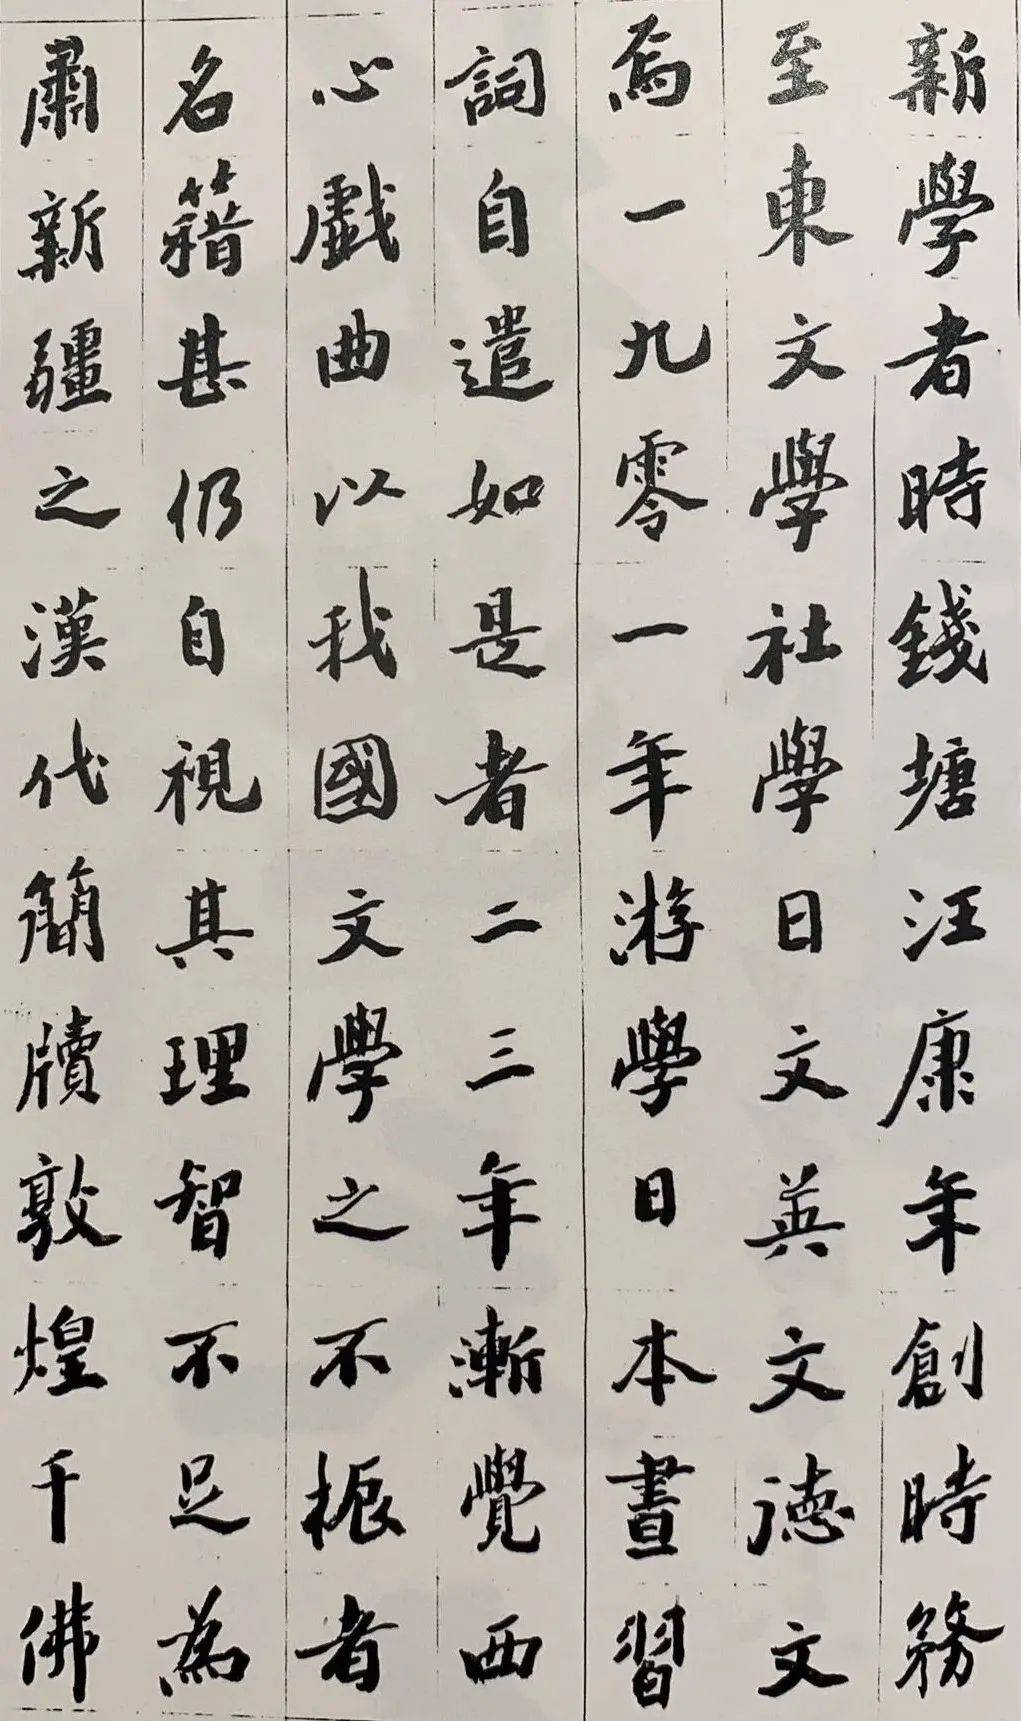 新學者時錢塘汪康年創時務
至東文學社學日文英文德文
焉一九零一年游學日本晝習
詞自遣如是者二三年漸覺西
心戲曲以我國文學之不振者
名籍甚仍自視其理智不足為
肅新疆之漢代簡牘敦煌千佛